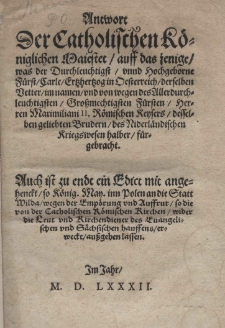 Antwort
Der Catholischen Kö-
niglichen Maiestet / auff das jenige /
was der Durchleuchtigst / vnnd Hochgeborne
Fürst / Carle / Ertzhertzog in Oesterreich / derselben
Vetter / im namen / vnd von wegen des Allerdurch-
leuchtigsten / Großmechtigsten Fürsten / Her-
ren Maximiliani II. Römischen Keysers / desselben
geliebten Brudern / des Niderländischen
Kriegswesen halber / für-
gebracht.
Auch ist zu endt ein Edict mit ange-
henckt / so König. May. inn Polen an die Statt
Wilda / wegen der Empörung vnd Auffrur / so die
von der Catholischen Römischen Kirchen / wider
die Leut vnd Kirchendiener des Euangeli-
schen vnd Sächsischen hauffens / er-
weckt / außgehen lassen.
Im Jahr /
M. D. LXXXII.